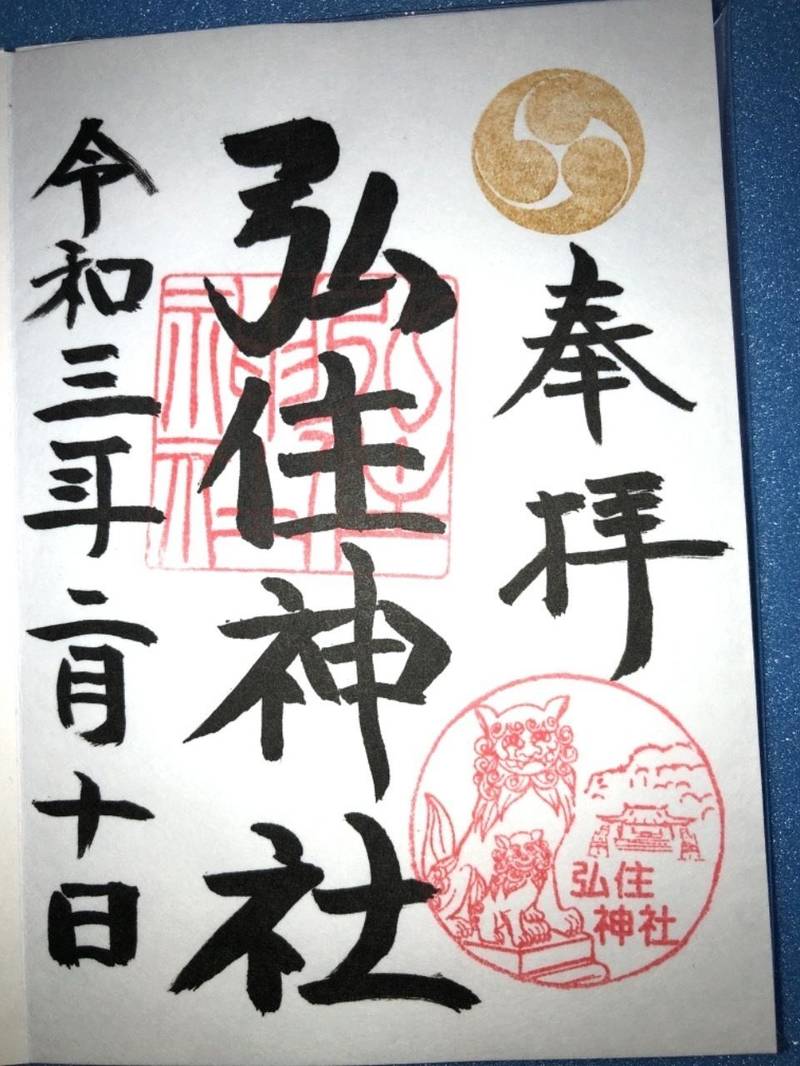 奉拝
弘住神社
令和三年二月十日
弘住
神社